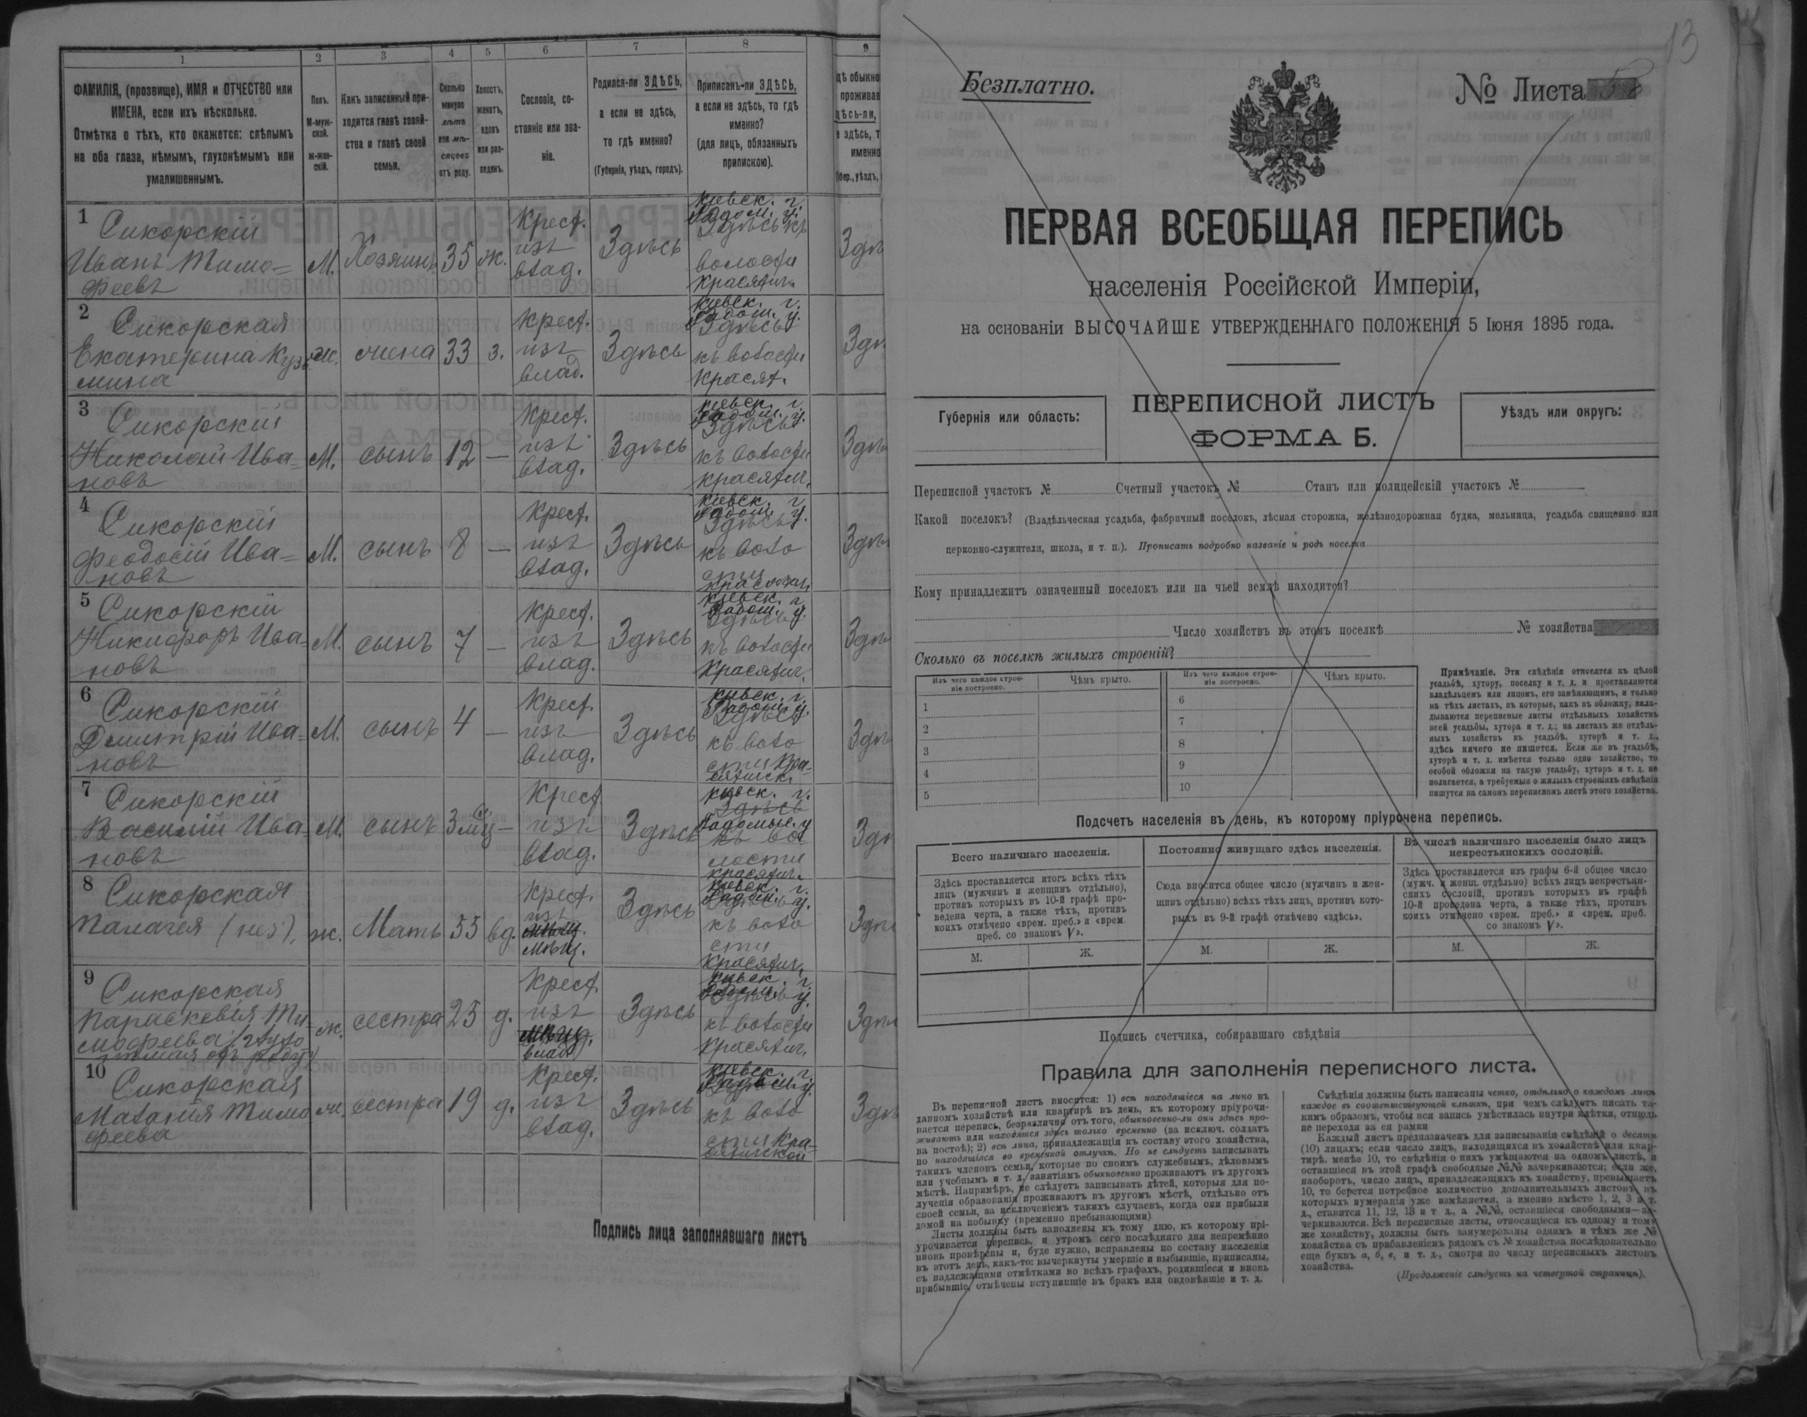 1 2 3 4 5 6 7 8 9
ФАМИЛІЯ, (прозвище), ИМЯ и ОТЧЕСТВО или
ИМЕНА, если ихъ нѣсколько.
Отмѣтка о тѣхъ, кто окажется: слѣпымъ
на оба глаза, нѣмымъ, глухонѣмымъ или
умалишеннымъ.
Полъ.
М-муж-
ской.
ж-жен-
скій.
Какъ записанный при-
ходится главѣ хозяй-
ства и главѣ своей
семьи.
Сколько
минуло
лѣтъ
или мѣ-
сяцевъ
отъ роду.
Холостъ,
женатъ,
вдовъ
или раз-
веденъ.
Сословіе, со-
стояніе или зва-
ніе.
Родился-ли ЗДѢСЬ,
а если не здѣсь,
то гдѣ именно?
(Губернія, уѣздъ, городъ).
Приписанъ-ли ЗДѢСЬ,
а если не здѣсь, то гдѣ
именно?
(для лицъ, обязанныхъ
припискою).
гдѣ обыкно
проживае
здѣсь-ли,
не здѣсь, т
именно
(губер., уѣздъ,
1 Сикорскій
Иванъ Тимо=
феевъ
М. Хозяинъ 35 ж.
Крест.
изъ
влад.
Здѣсь
Кіевск. г.
Радом. у.
Здѣсь къ
волости
Красятич.
Здѣ
2 Сикорская
Екатерина Кузь
мина
ж. жена 33 з.
Крест.
изъ
влад.
Здѣсь
Кіевск. г.
Радом. у.
Здѣсь
къ волости
Красят.
Здѣ
3 Сикорскій
Николай Ива=
новъ
М. сынъ 12 —
Крест.
изъ
влад.
Здѣсь
Кіевск. г.
Радом. у.
Здѣсь
къ волости
Красятич.
Здѣ
4 Сикорскій
Феодосій Ива=
новъ
М. сынъ 8 —
Крест.
изъ
влад.
Здѣсь
Кіевск. г.
Радом. у.
Здѣсь
къ воло
сти
Здѣ
5 Сикорскій
Никифоръ Ива=
новъ
М. сынъ 7 —
Крест.
изъ
влад.
Здѣсь
Кіевск. г.
Радом. у.
Здѣсь
къ волости
Красятич.
Здѣ
6 Сикорскій
Дмитрій Ива=
новъ
М. сынъ 4 —
Крест.
изъ
влад.
Здѣсь
Кіевск. г.
Радом. у.
Здѣсь
къ воло
сти Кра-
Здѣ
7 Сикорскій
Василій Ива=
новъ
М. сынъ 3 мѣц —
Крест.
изъ
влад.
Здѣсь
Кіевск. г.
Здѣсь
Радомысл. у
къ во
лости
Красятич.
Здѣ
8 Сикорская
Палагея (нез).
ж. Мать 55 вд.
Крест.
изъ
мѣщ.
Здѣсь
Кіевск. г.
Радом. у.
къ воло
сти
Красятич.
Здѣ
9 Сикорская
Параскевія Ти=
мофеева (глухо
нѣмая отъ роду)
ж. сестра 23 д.
Крест.
изъ
влад.
Здѣсь
Кіевск. г.
Радом. у.
Здѣсь
къ волости
Красятич.
Здѣ
10 Сикорская
Наталія Тимо
феева
ж. сестра 19 д.
Крест.
изъ
влад.
Здѣсь
Кіевск. г.
Радом. у.
къ воло
сти Кра-
сятичской
Здѣ
Подпись лица заполнявшаго листъ
13
Безплатно.
№ Листа
ПЕРВАЯ ВСЕОБЩАЯ ПЕРЕПИСЬ
населенія Россійской Имперіи,
на основаніи ВЫСОЧАЙШЕ УТВЕРЖДЕННАГО ПОЛОЖЕНІЯ 5 Іюня 1895 года.
Губернія или область:
ПЕРЕПИСНОЙ ЛИСТЪ
ФОРМА Б.
Уѣздъ или округъ:
Переписной участокъ № Счетный участокъ № Станъ или полицейскій участокъ №
Какой поселокъ? (Владѣльческая усадьба, фабричный поселокъ, лѣсная сторожка, желѣзнодорожная будка, мельница, усадьба священно или
церковно-служителя, школа, и т. п.). Прописать подробно названіе и родъ поселка
Кому принадлежитъ означенный поселокъ или на чьей землѣ находится?
Число хозяйствъ въ этомъ поселкѣ № хозяйства
Сколько въ поселкѣ жилыхъ строеній?
Изъ чего каждое строе-
ніе построено.
Чѣмъ крыто.
Изъ чего каждое строе-
ніе построено.
Чѣмъ крыто.
1 6
2 7
3 8
4 9
5 10
Примѣчаніе. Эти свѣдѣнія относятся къ цѣлой
усадьбѣ, хутору, поселку и т. д. и проставляются
владѣльцемъ или лицомъ, его замѣняющимъ, и только
на тѣхъ листахъ, въ которые, какъ въ обложку, вкла-
дываются переписные листы отдѣльныхъ хозяйствъ
всей усадьбы, хутора и т. д.; на листахъ же отдѣль-
ныхъ хозяйствъ въ усадьбѣ, хуторѣ и т. д.,
здѣсь ничего не пишется. Если же въ усадьбѣ,
хуторѣ и т. д. имѣется только одно хозяйство, то
особой обложки на такую усадьбу, хуторъ и т. д. не
полагается, а требуемыя о жилыхъ строеніяхъ свѣдѣнія
пишутся на самомъ переписномъ листѣ этого хозяйства.
Подсчетъ населенія въ день, къ которому пріурочена перепись.
Всего наличнаго населенія.
Постоянно живущаго здѣсь населенія.
Въ числѣ наличнаго населенія было лицъ
некрестьянскихъ сословій.
Здѣсь проставляется итогъ всѣхъ тѣхъ
лицъ (мужчинъ и женщинъ отдѣльно),
противъ которыхъ въ 10-й графѣ про-
ведена черта, а также тѣхъ, противъ
коихъ отмѣчено «врем. преб.» и «врем.
преб. со знакомъ V».
Сюда вносится общее число (мужчинъ и жен-
щинъ отдѣльно) всѣхъ тѣхъ лицъ, противъ кото-
рыхъ въ 9-й графѣ отмѣчено «здѣсь».
Здѣсь проставляется изъ графы 6-й общее число
(мужч. и женщ. отдѣльно) всѣхъ лицъ некрестьян-
скихъ сословій, противъ которыхъ въ графѣ
10-й проведена черта, а также тѣхъ, противъ
коихъ отмѣчено «врем. преб.» и «врем. преб.
со знакомъ V».
М. Ж. М. Ж. М. Ж.
Подпись счетчика, собиравшаго свѣдѣнія
Правила для заполненія переписного листа.
Въ переписной листъ вносятся: 1) всѣ находящіеся на лицо въ
данномъ хозяйствѣ или квартирѣ въ день, къ которому пріурочи-
вается перепись, безразлично отъ того, обыкновенно-ли они здѣсь про-
живаютъ или находятся здѣсь только временно (за исключ. солдатъ
на постоѣ); 2) всѣ лица, принадлежащія къ составу этого хозяйства,
но находящіяся во временной отлучкѣ. Но не слѣдуетъ записывать
такихъ членовъ семьи, которые по своимъ служебнымъ, дѣловымъ
или учебнымъ и т. д. занятіямъ обыкновенно проживаютъ въ другомъ
мѣстѣ. Напримѣръ, не слѣдуетъ записывать дѣтей, которыя для по-
лученія образованія проживаютъ въ другомъ мѣстѣ, отдѣльно отъ
своей семьи, за исключеніемъ такихъ случаевъ, когда они прибыли
домой на побывку (временно пребывающими)
Листы должны быть заполнены къ тому дню, къ которому прі-
урочивается перепись, и утромъ сего послѣдняго дня непремѣнно
вновь провѣрены и, буде нужно, исправлены по составу населенія
въ этотъ день, какъ-то: вычеркнуты умершіе и выбывшіе, приписаны,
съ надлежащими отмѣтками во всѣхъ графахъ, родившіеся и вновь
прибывшіе, отмѣчены вступившіе въ бракъ или овдовѣвшіе и т. д.
Свѣдѣнія должны быть написаны четко, отдѣльно о каждомъ лицѣ
каждое въ соотвѣтствующей клѣткѣ, при чемъ слѣдуетъ писать та-
кимъ образомъ, чтобы вся запись умѣстилась внутри клѣтки, отнюдь
не переходя за ея рамки
Каждый листъ предназначенъ для записыванія свѣдѣній о десяти
(10) лицахъ; если число лицъ, находящихся въ хозяйствѣ или квар-
тирѣ, менѣе 10, то свѣдѣнія о нихъ умѣщаются на одномъ листѣ, и
оставшіеся въ этой графѣ свободные №№ зачеркиваются; если же,
наоборотъ, число лицъ, принадлежащихъ къ хозяйству, превышаетъ
10, то берется потребное количество дополнительныхъ листовъ, въ
которыхъ нумерація уже измѣняется, а именно вмѣсто 1, 2, 3 и т.
д., ставится 11, 12, 13 и т. д., а №№, оставшіеся свободными—за-
черкиваются. Всѣ переписные листы, относящіеся къ одному и тому
же хозяйству, должны быть занумерованы однимъ и тѣмъ же №
хозяйства съ прибавленіемъ рядомъ съ № хозяйства послѣдовательно
еще буквъ а, б, в, и т. д., смотря по числу переписныхъ листовъ
хозяйства.
(Продолженіе слѣдуетъ на четвертой страницѣ).